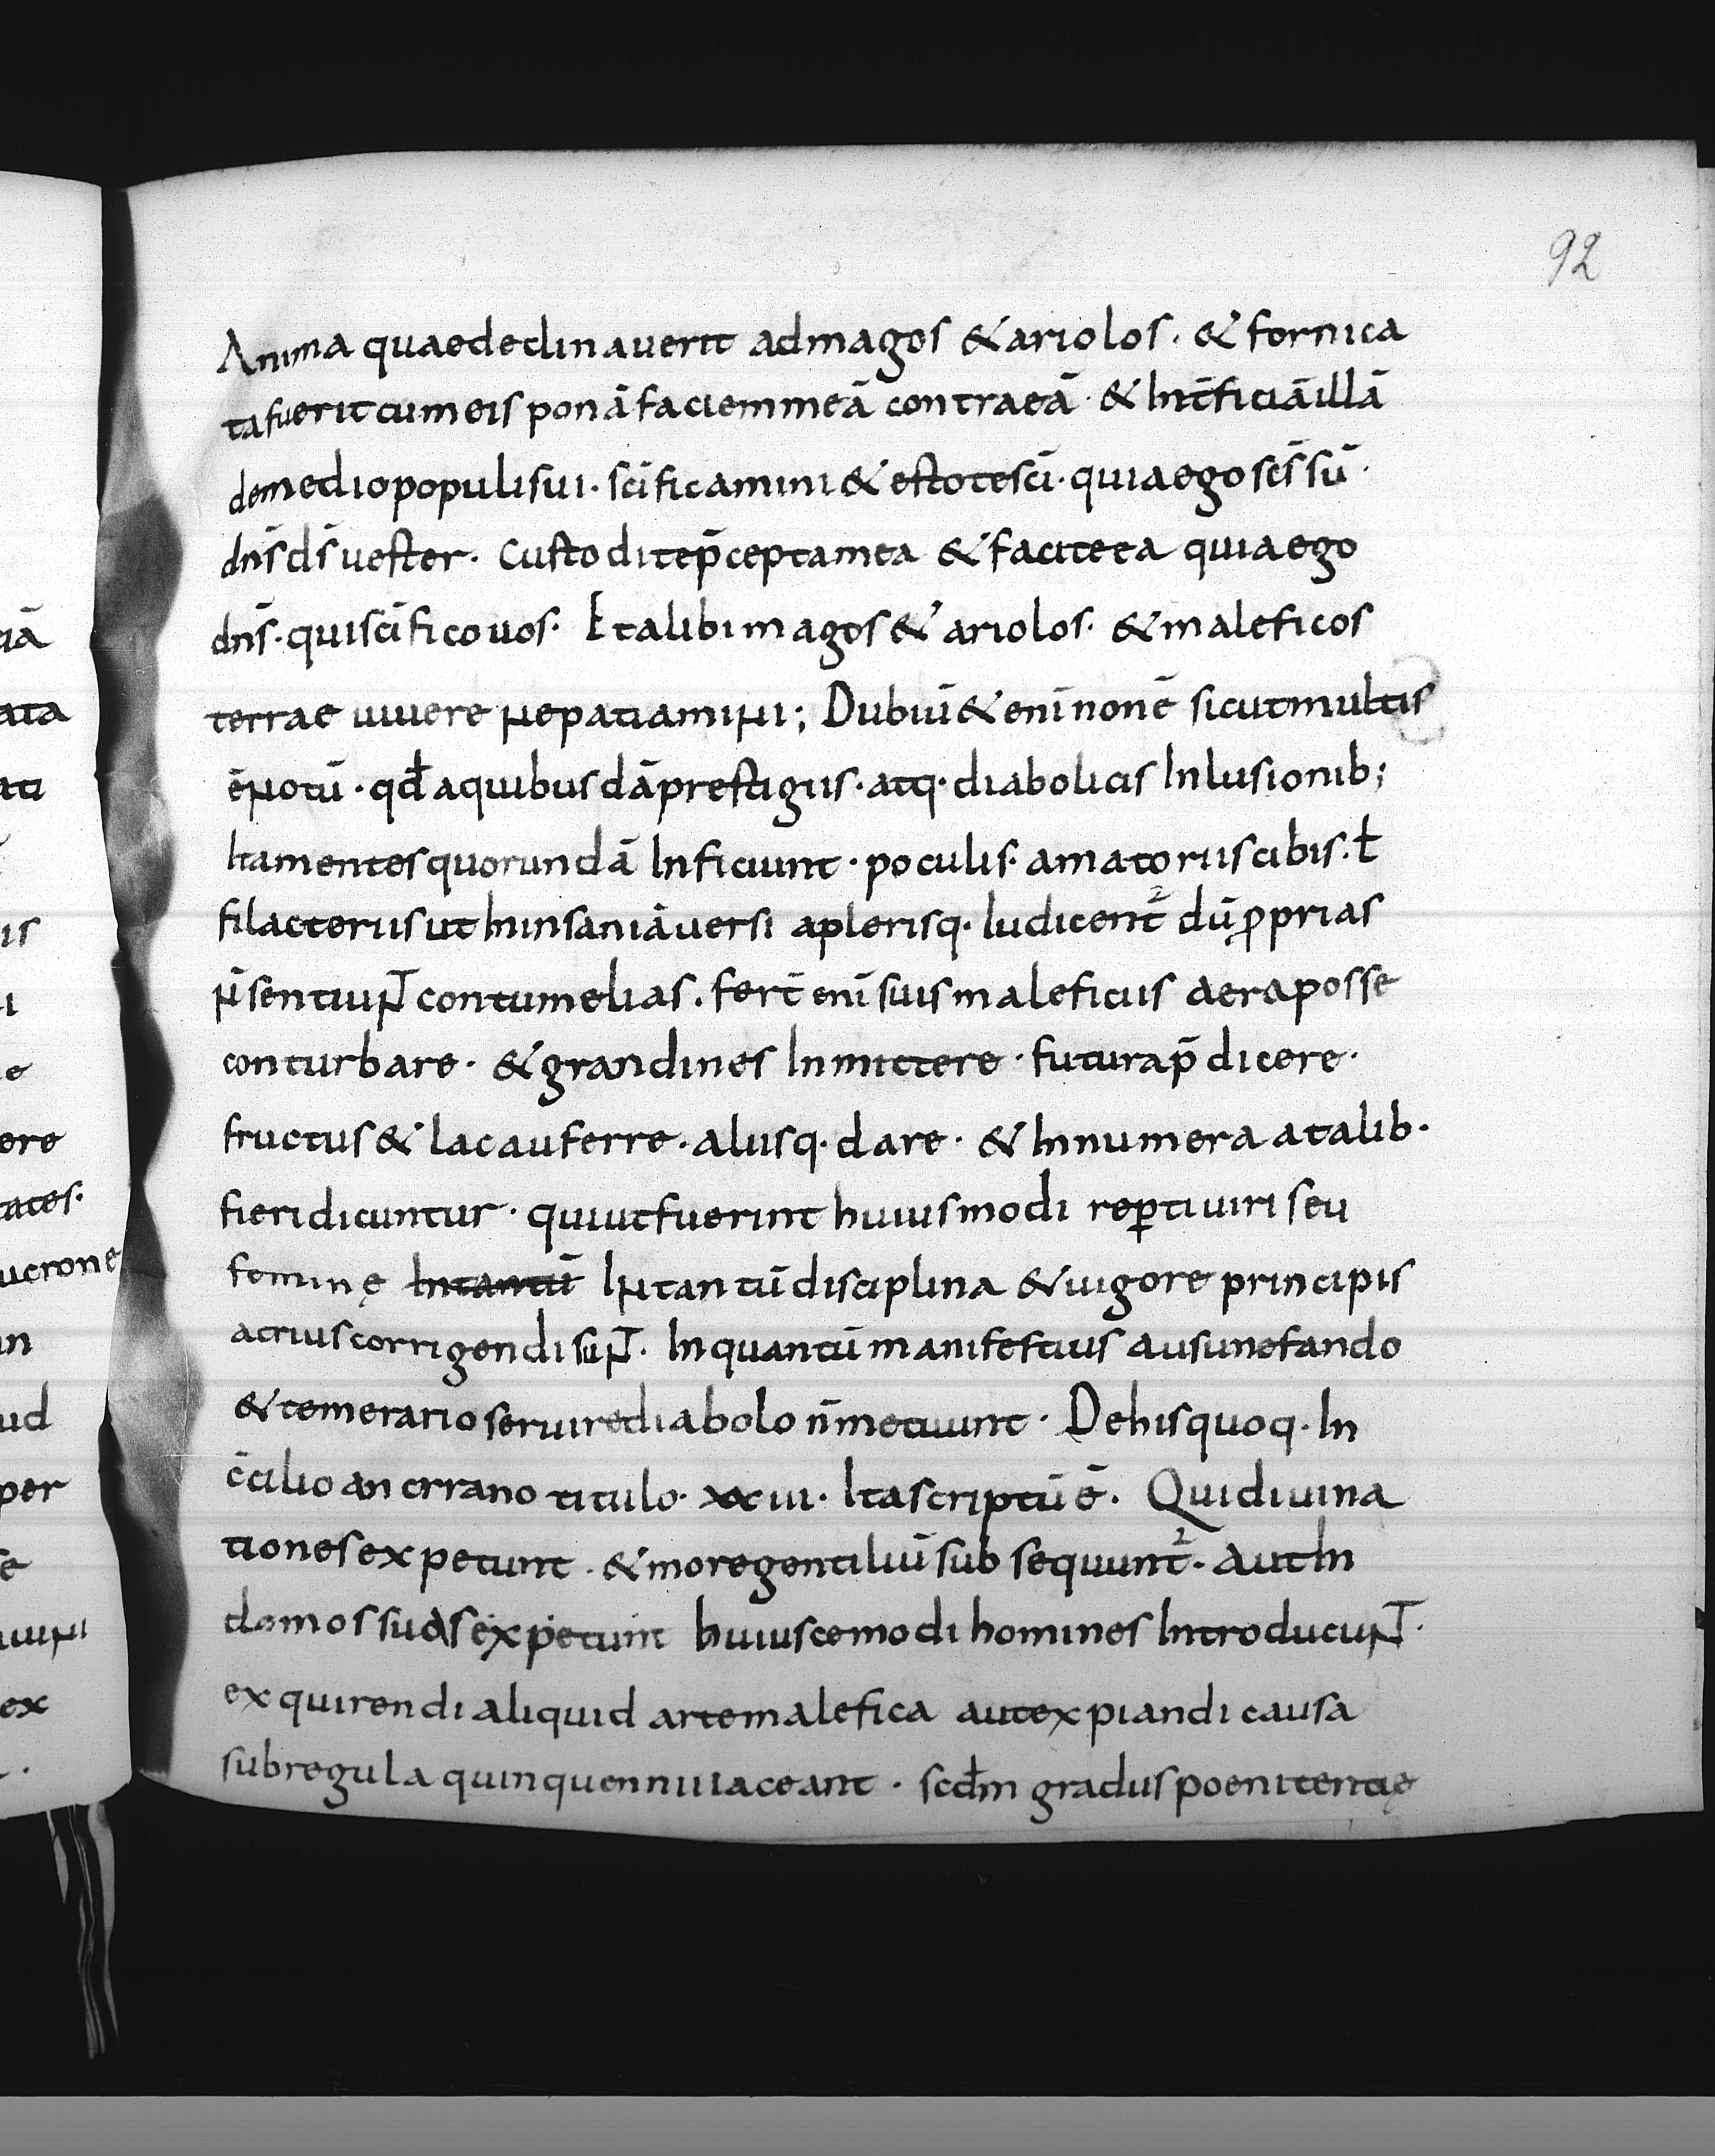 92
Anima quae declinauerit ad magos & ariolos · & fornica
ta fuerit cum eis ponā faciem meā contra eā · & Int̄ficiā illā
de medio populi sui · sc̄ificamini & estote sc̄i · quia ego sc̄s sū ·
dn̄s ds̄ uester · Custodite p̄cepta mea & facite ea quia ego
dn̄s · qui sc̄ifico uos · Et alibi magos & ariolos · & maleficos
terrae uiuere ne patiamini ; Dubiū &enī non ē sicut multis
ē notū · qđ a quibusdā prestigiis · atq · diabolicis Inlusionib;
Ita mentes quorundā Inficiunt · poculis · amatoriis cibis · ł
filacteriis ut In insaniā uersi a plerisq · Iudicent̄ dū proprias
n̄ sentiuNT contumelias . fert̄ enī suis maleficiis aera posse
conturbare · & grandines Inmittere · futura p̄dicere ·
fructus & lac auferre · aliisq · dare · & Innumera a talib ·
fieri dicuntur · qui ut fuerint huiusmodi rep̱ti uiri seu
feminę Intantū Intantū disciplina & uigore principis
acrius corrigendi suNT · In quantū manifestius ausu nefando
& temerario seruire diabolo n̄ metuunt · De his quoq · In
c̄cilio ancirrano titulo · xxiii · Ita scriptū ē . Qui diuina
tiones expetunt · & more gentiliū subsequunt̄ · aut In
domos suas expetunt huiuscemodi homines IntroducuNT ·
exquirendi aliquid arte malefica aut expiandi causa
sub regula quinquennii iaceant · scđm gradus poenitentię